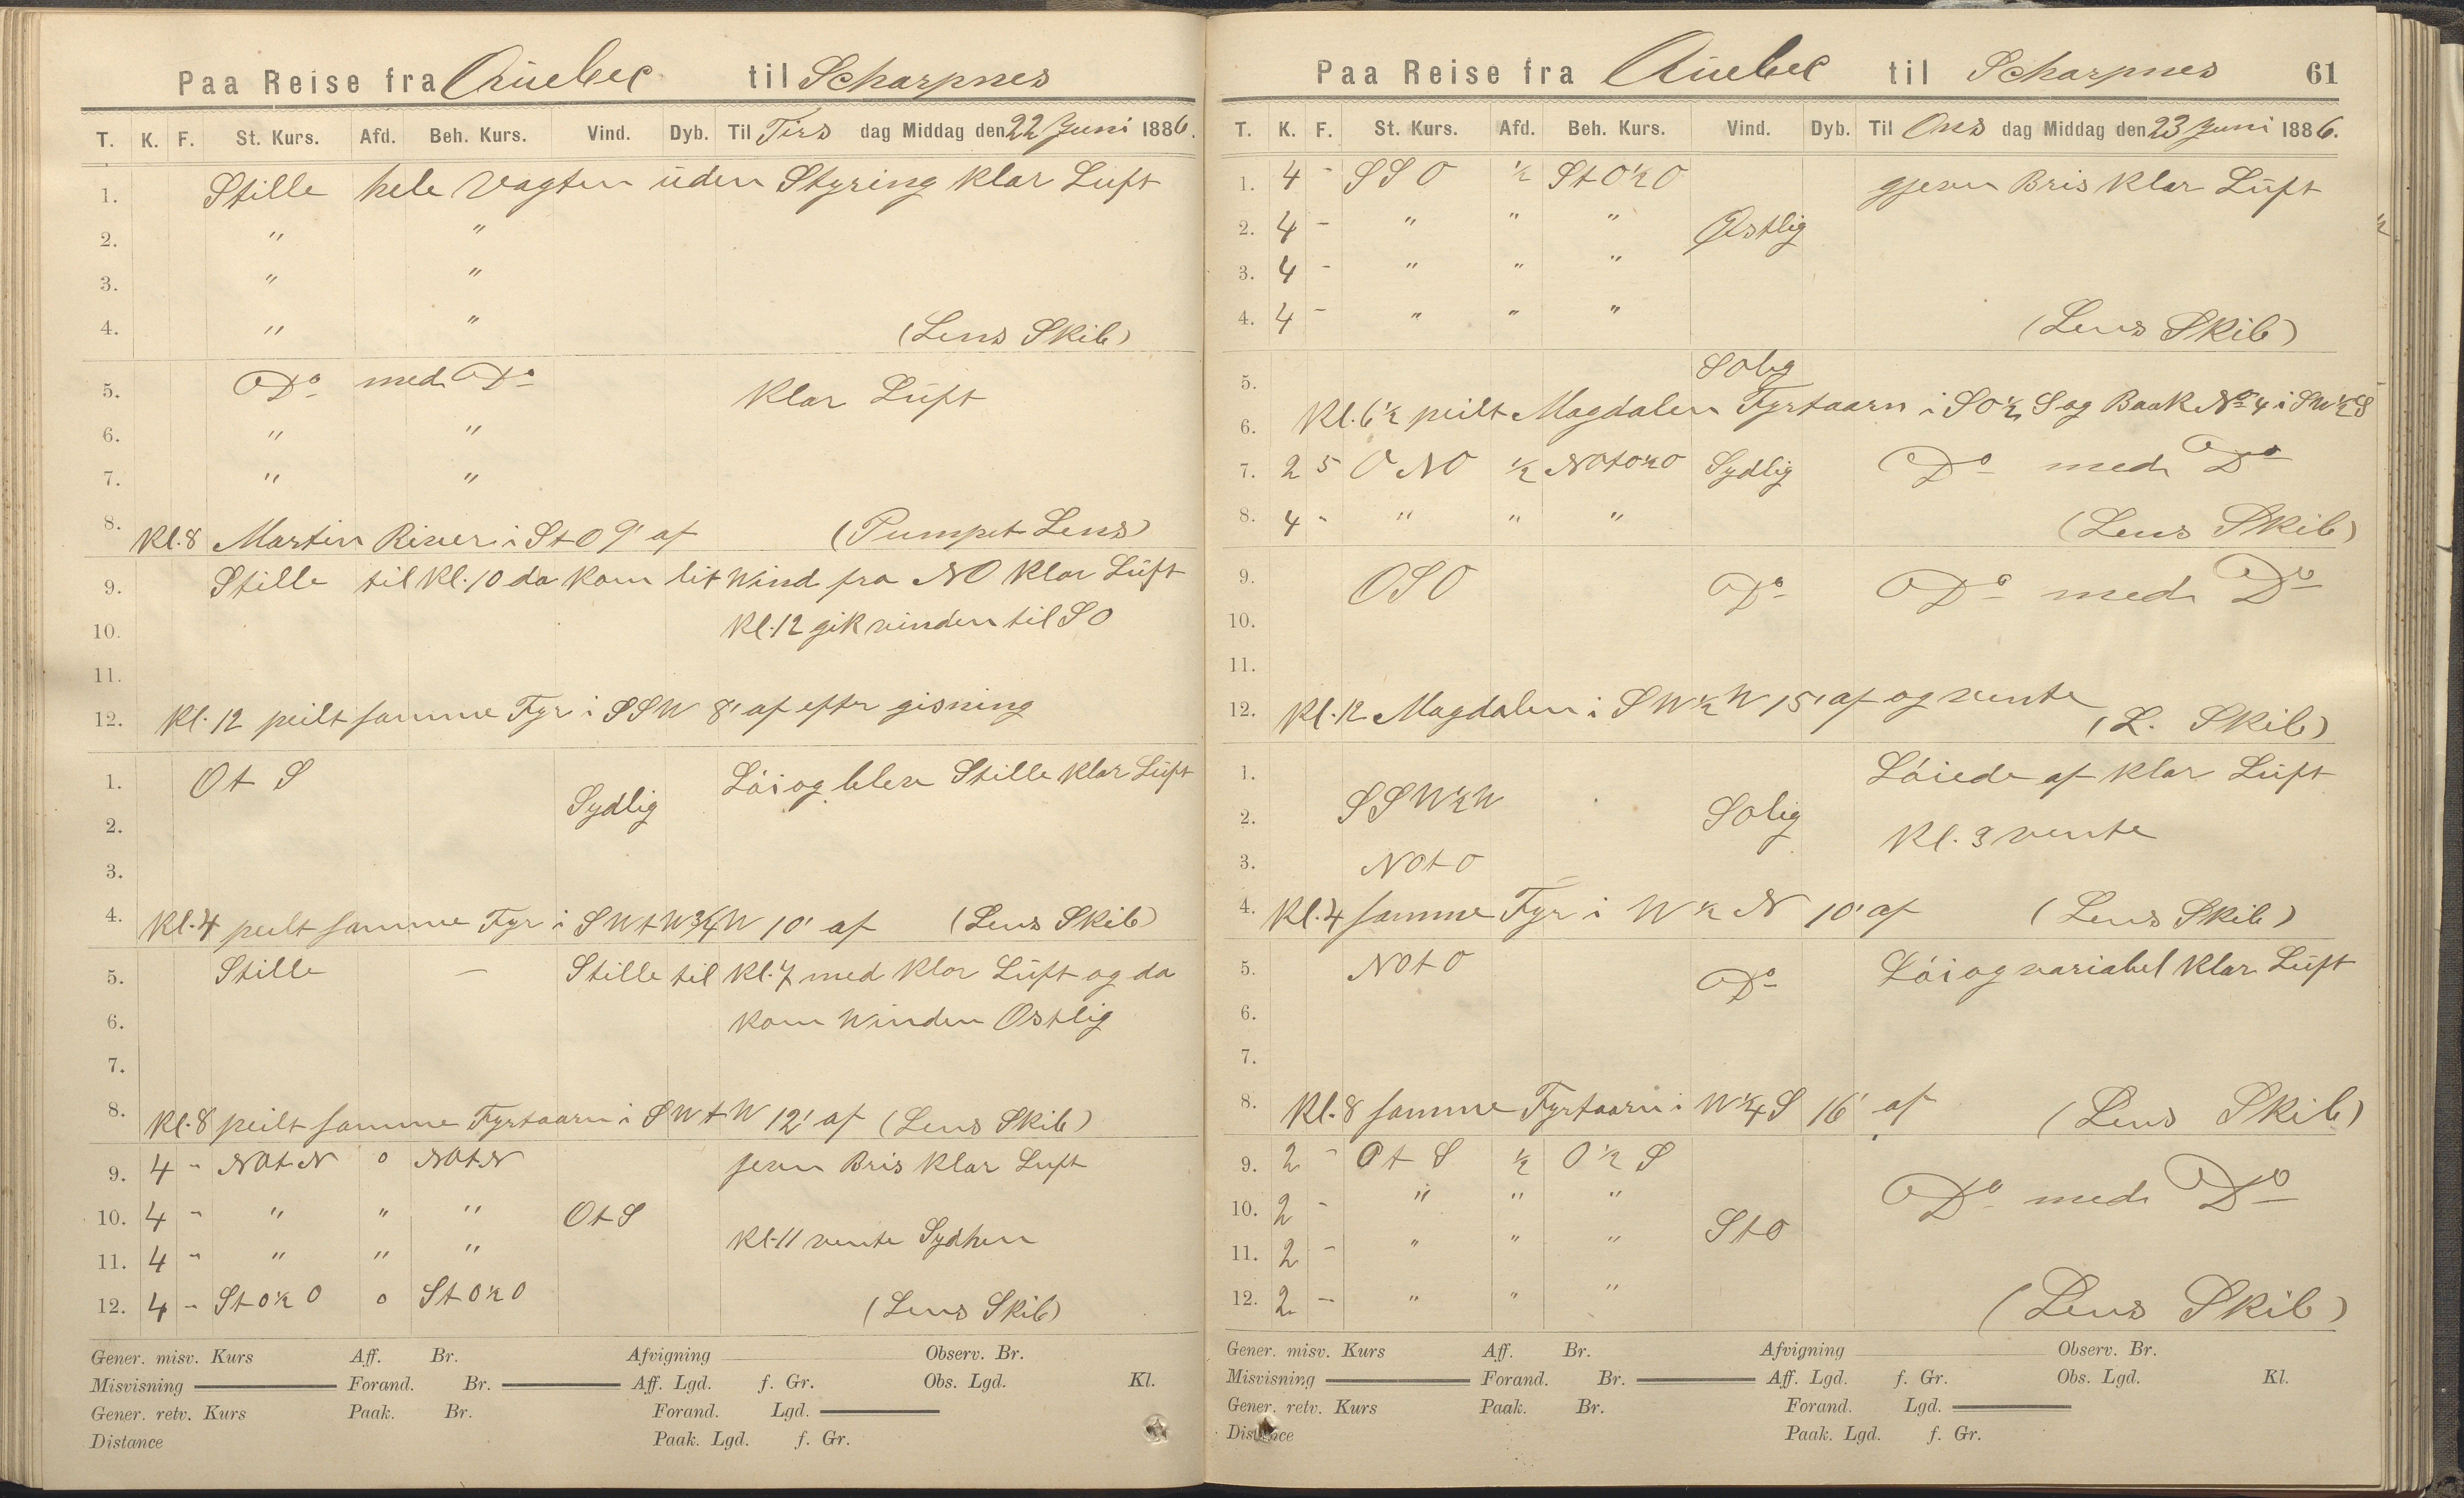 Paa Reise fra Quebec til Scharpnes
T. K. F. St. Kurs. Afd. Beh. Kurs. Vind. Dyb. Til Tirs dag Middag den 22 Juni 1886.
1. Stille hele Vagten uden Styring klar Luft
2. " "
3. " "
4. " " (Lens Skib)
5. Do med Do klar Luft
6. " "
7. " "
8. Kl. 8 Martin River i StO 9' af (Pumpet Lens)
9. Stille til Kl. 10 da kom lit Wind fra NO klar Luft
10. Kl. 12 gik vinden til SO
11.
12. Kl. 12 peilt samme Fyr i SSW 8' af efter gisning
1. Ot S Sydlig Löi og blev Stille klar Luft
2.
3.
4. Kl. 4 peilt samme Fyr i SWtW 3/4 W 10' af (Lens Skib)
5. Stille – Stille til Kl. 7 med klar Luft og da
6. kom Winden Ostlig
7.
8. Kl. 8 peilt samme Fyrtaarn i SWtW 12' af (Lens Skib)
9. 4 - NOtN 0 NOtN jevn Bris klar Luft
10. 4 - " " " OtS
11. 4 - " " " Kl. 11 vente Sydhen
12. 4 - StO½O 0 StO½O (Lens Skib)
Gener. misv. Kurs Aff. Br. Afvigning Observ. Br.
Misvisning Forand. Br. Aff. Lgd. f. Gr. Obs. Lgd. Kl.
Gener. retv. Kurs Paak. Br. Forand. Lgd.
Distance Paak. Lgd. f. Gr.
Paa Reise fra Quebec til Scharpnes 61
T. K. F. St. Kurs. Afd. Beh. Kurs. Vind. Dyb. Til Ons dag Middag den 23 Juni 1886.
1. 4 - SSO ½ StO½O gjevn Bris klar Luft
2. 4 - " " " Østlig
3. 4 - " " "
4. 4 - " " " (Lens Skib)
5. SOlig
6. Kl. 6½ peilt Magdalen Fyrtaarn i SO½S og Baak No 4 i SW½S
7. 2 5 ONO ½ NOtO½O Sydlig Do med Do
8. 4 - " " " (Lens Skib)
9. OSO Do Do med Do
10.
11.
12. Kl. 12 Magdalen i SW½W 15' af og vente (L. Skib)
1. Löiede af klar Luft
2. SSW½W SOlig Kl. 3 vente
3. NOtO
4. Kl. 4 samme Fyr i W½N 10' af (Lens Skib)
5. NOtO Do Löi og variabel klar Luft
6.
7.
8. Kl. 8 samme Fyrtaarn i W¼S 16' af (Lens Skib)
9. 2 - OtS ½ O½S
10. 2 - " " " Do med Do
11. 2 - " " " StO
12. 2 - " " " (Lens Skib)
Gener. misv. Kurs Aff. Br. Afvigning Observ. Br.
Misvisning Forand. Br. Aff. Lgd. f. Gr. Obs. Lgd. Kl.
Gener. retv. Kurs Paak. Br. Forand. Lgd.
Distance Paak. Lgd. f. Gr.